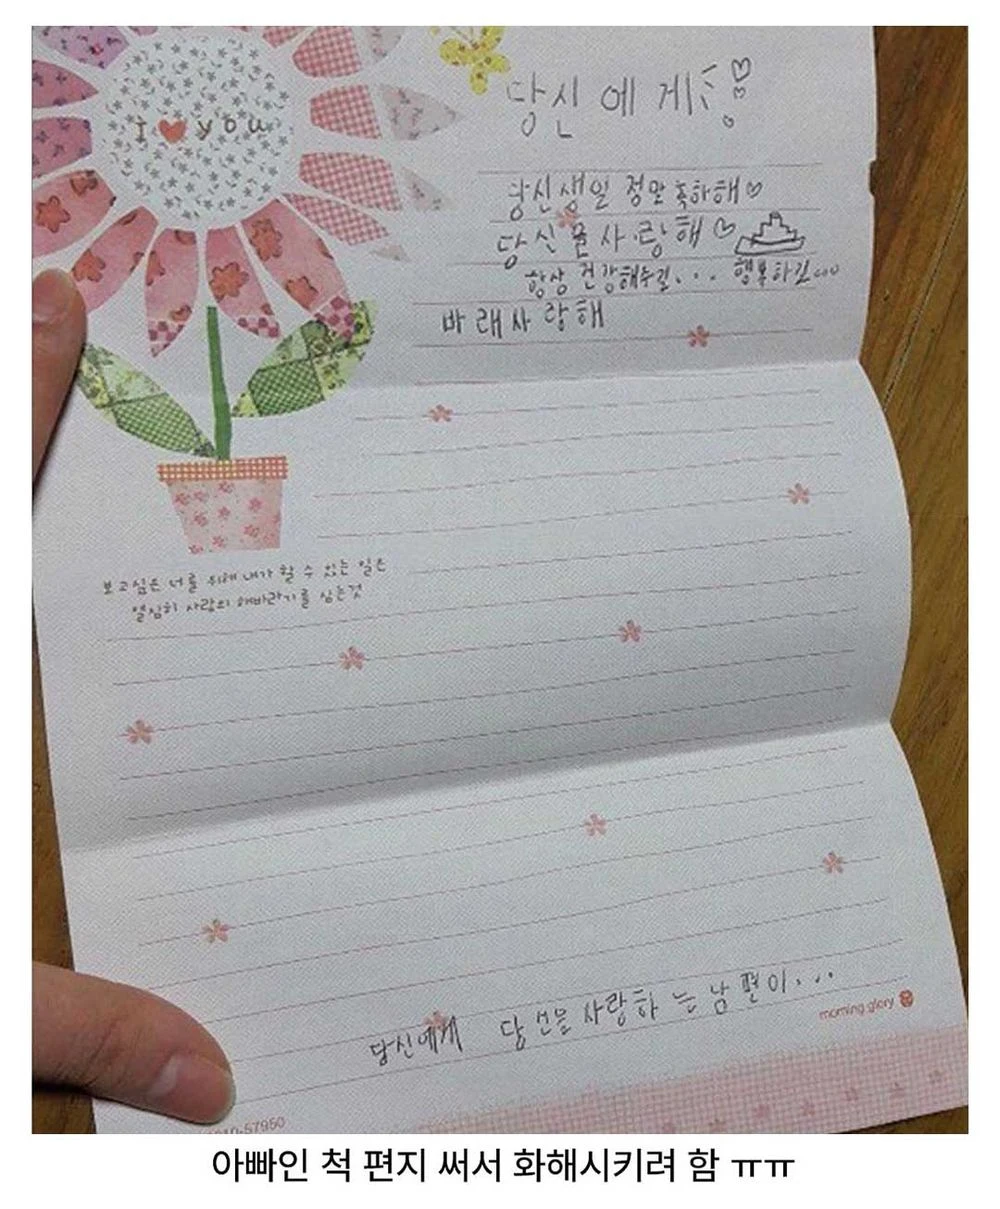 I ♥ you
당신에게! ♡
당신생일 정말 축하해♡
당신을 사랑해♡
항상 건강해주길... 행복하길...
바래사랑해
보고싶은 너를 위해 내가 할 수 있는 일은
열심히 사랑의 해바라기를 심는것
당신에게 당신을 사랑하는 남편이...
morning glory
-57950
아빠인 척 편지 써서 화해시키려 함 ㅠㅠ